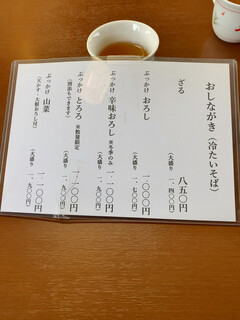 おしながき（冷たいそば）
ざる　八五〇円
（大盛り　一、四〇〇円）
ぶっかけ おろし　一、〇〇〇円
（大盛り　一、七〇〇円）
ぶっかけ 辛味おろし ※冬季のみ　一、一〇〇円
（大盛り　一、九〇〇円）
ぶっかけ とろろ ※数量限定　一、一〇〇円
（別添もできます）　（大盛り　一、九〇〇円）
ぶっかけ 山菜　一、一〇〇円
（天かす、大根おろし付）　（大盛り　一、九〇〇円）